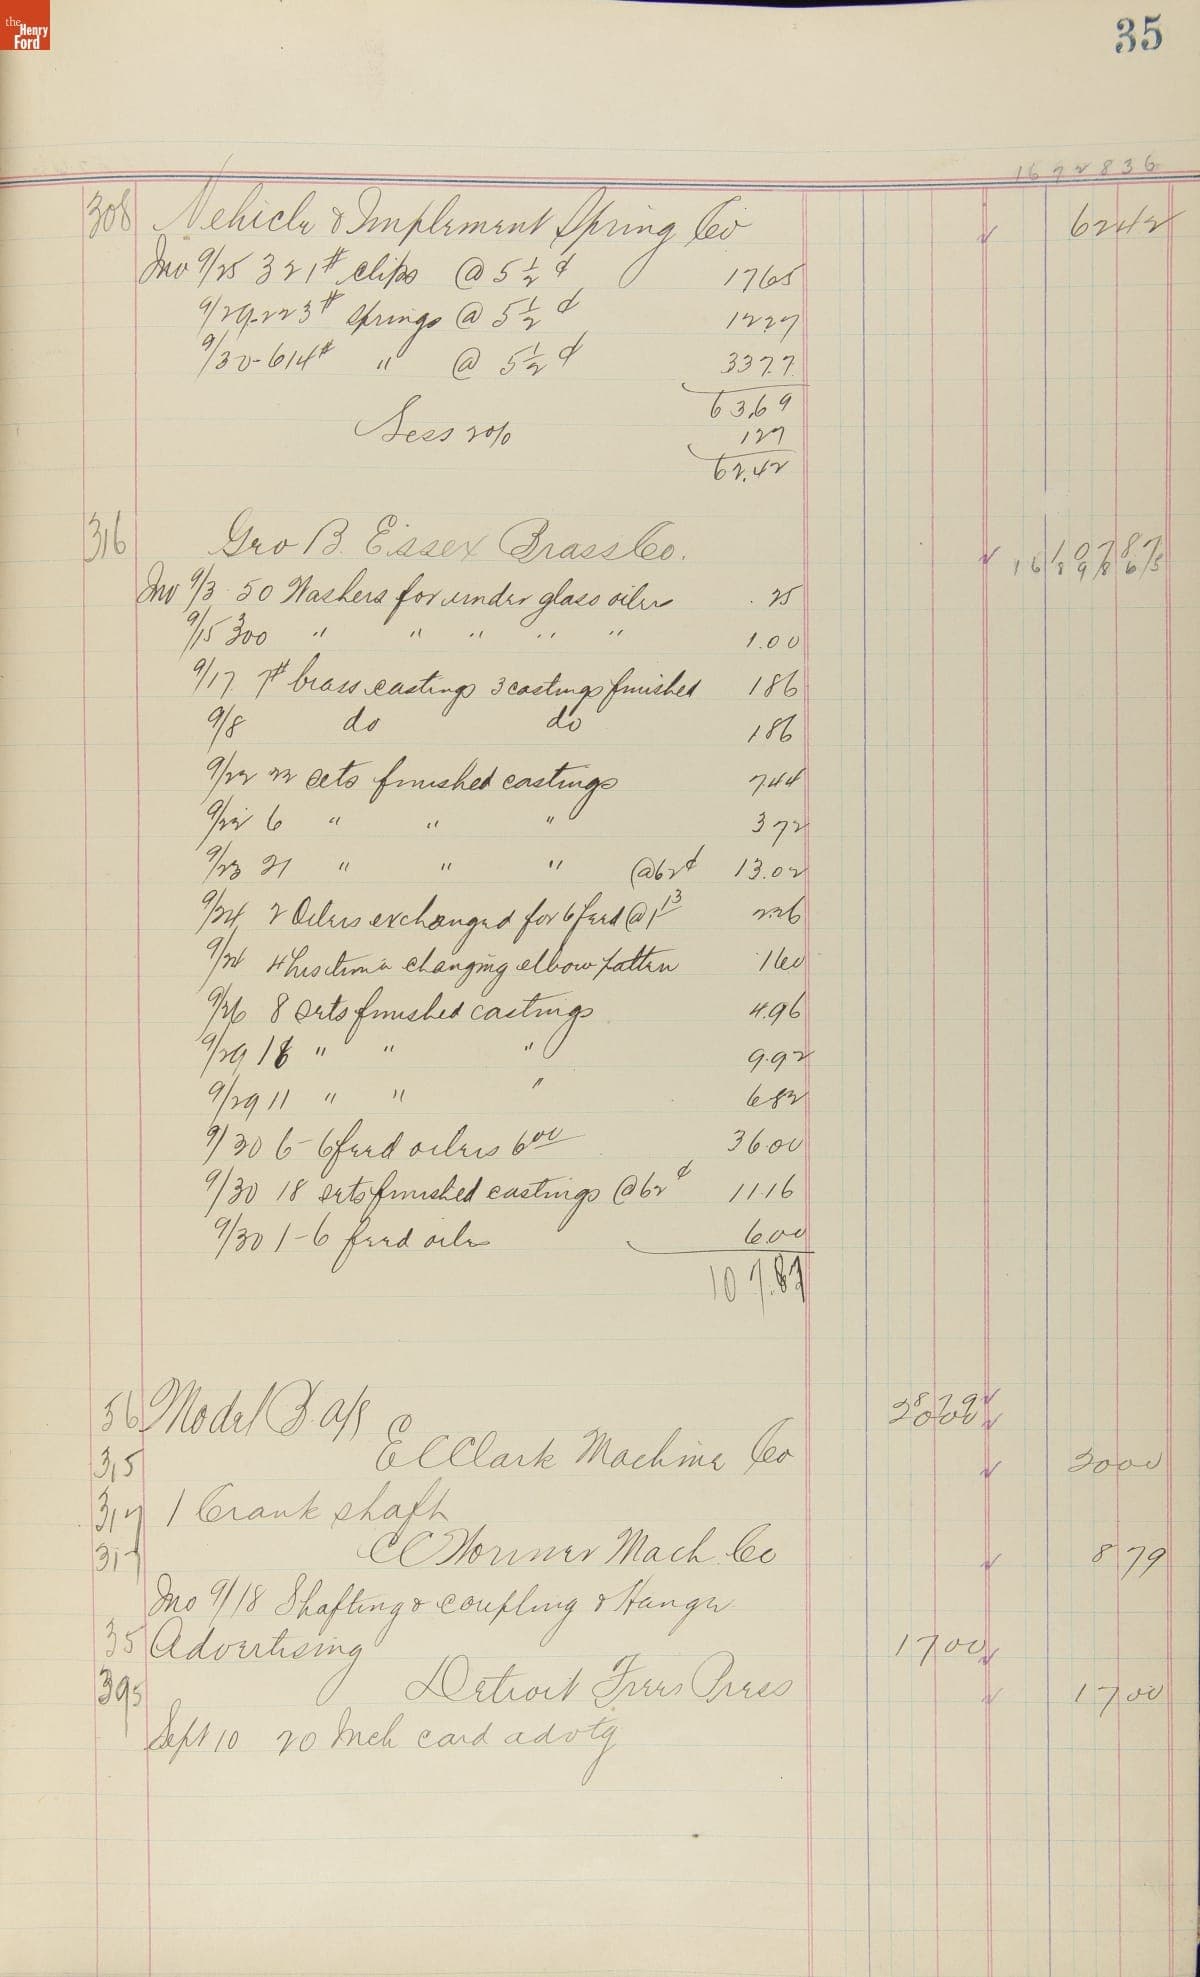 the Henry Ford
35
1672836
308 Vehicle & Implement Spring Co 6242
Inv 9/25 321# clips @ 5 1/2 ¢ 1765
9/29-223# springs @ 5 1/2 ¢ 1227
9/30-614# " @ 5 1/2 ¢ 3377
63.69
Less 2% 127
62.42
316 Geo B. Essex Brass Co. 10787
Inv 9/3 50 Washers for under glass oilers .25
9/15 300 " " " " " 1.00
9/17 7# brass castings 3 castings finished 186
9/8 do do 186
9/22 22 sets finished castings 744
9/22 6 " " " 372
9/23 21 " " " @62¢ 13.02
9/24 2 Oilers exchanged for 6 feed @ 1 13 226
9/24 4 hrs time changing elbow patten 160
9/26 8 sets finished castings 4.96
9/29 16 " " " 9.92
9/29 11 " " " 682
9/30 6-6 feed oilers 6 00 36.00
9/30 18 sets finished castings @62¢ 11.16
9/30 1-6 feed oiler 6.00
107.87
56 Model B a/c 2879
315 E C Clark Machine Co 2000
317 1 Crank shaft
317 C C Wormer Mach. Co 879
Inv 9/18 Shafting & coupling & Hanger
35 Advertising 1700
395 Detroit Free Press 1700
Sept 10 20 Inch card advtg